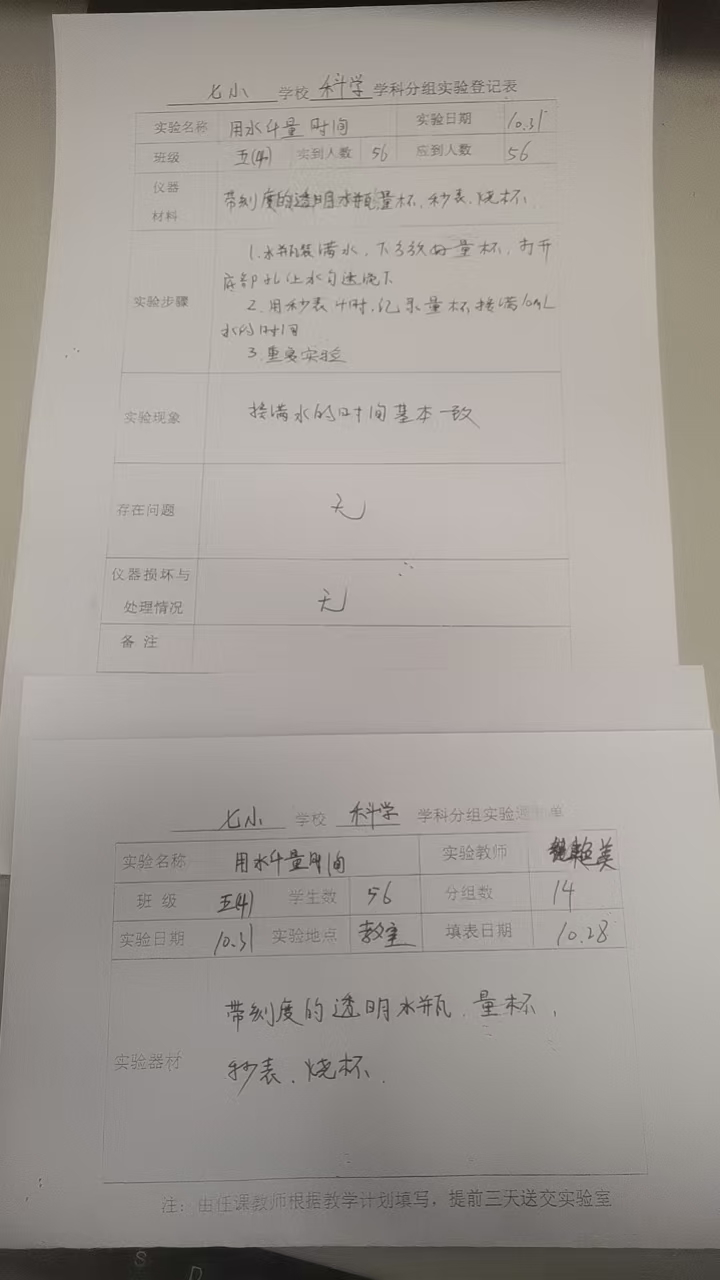 七小 学校 科学 学科分组实验登记表
实验名称 用水计量时间 实验日期 10.31
班级 五(4) 实到人数 56 应到人数 56
仪器
材料
带刻度的透明水瓶、量杯、秒表、烧杯、
实验步骤
1.水瓶装满水,下方放好量杯,打开
底部孔让水匀速流下
2.用秒表计时,记录量杯接满10mL
水的时间
3.重复实验
实验现象 接满水的时间基本一致
存在问题 无
仪器损坏与
处理情况
无
备 注
七小 学校 科学 学科分组实验通知单
实验名称 用水计量时间 实验教师 美
班 级 五(4) 学生数 56 分组数 14
实验日期 10.31 实验地点 教室 填表日期 10.28
实验器材
带刻度的透明水瓶、量杯、
秒表、烧杯、
注:由任课教师根据教学计划填写,提前三天送交实验室
S
D